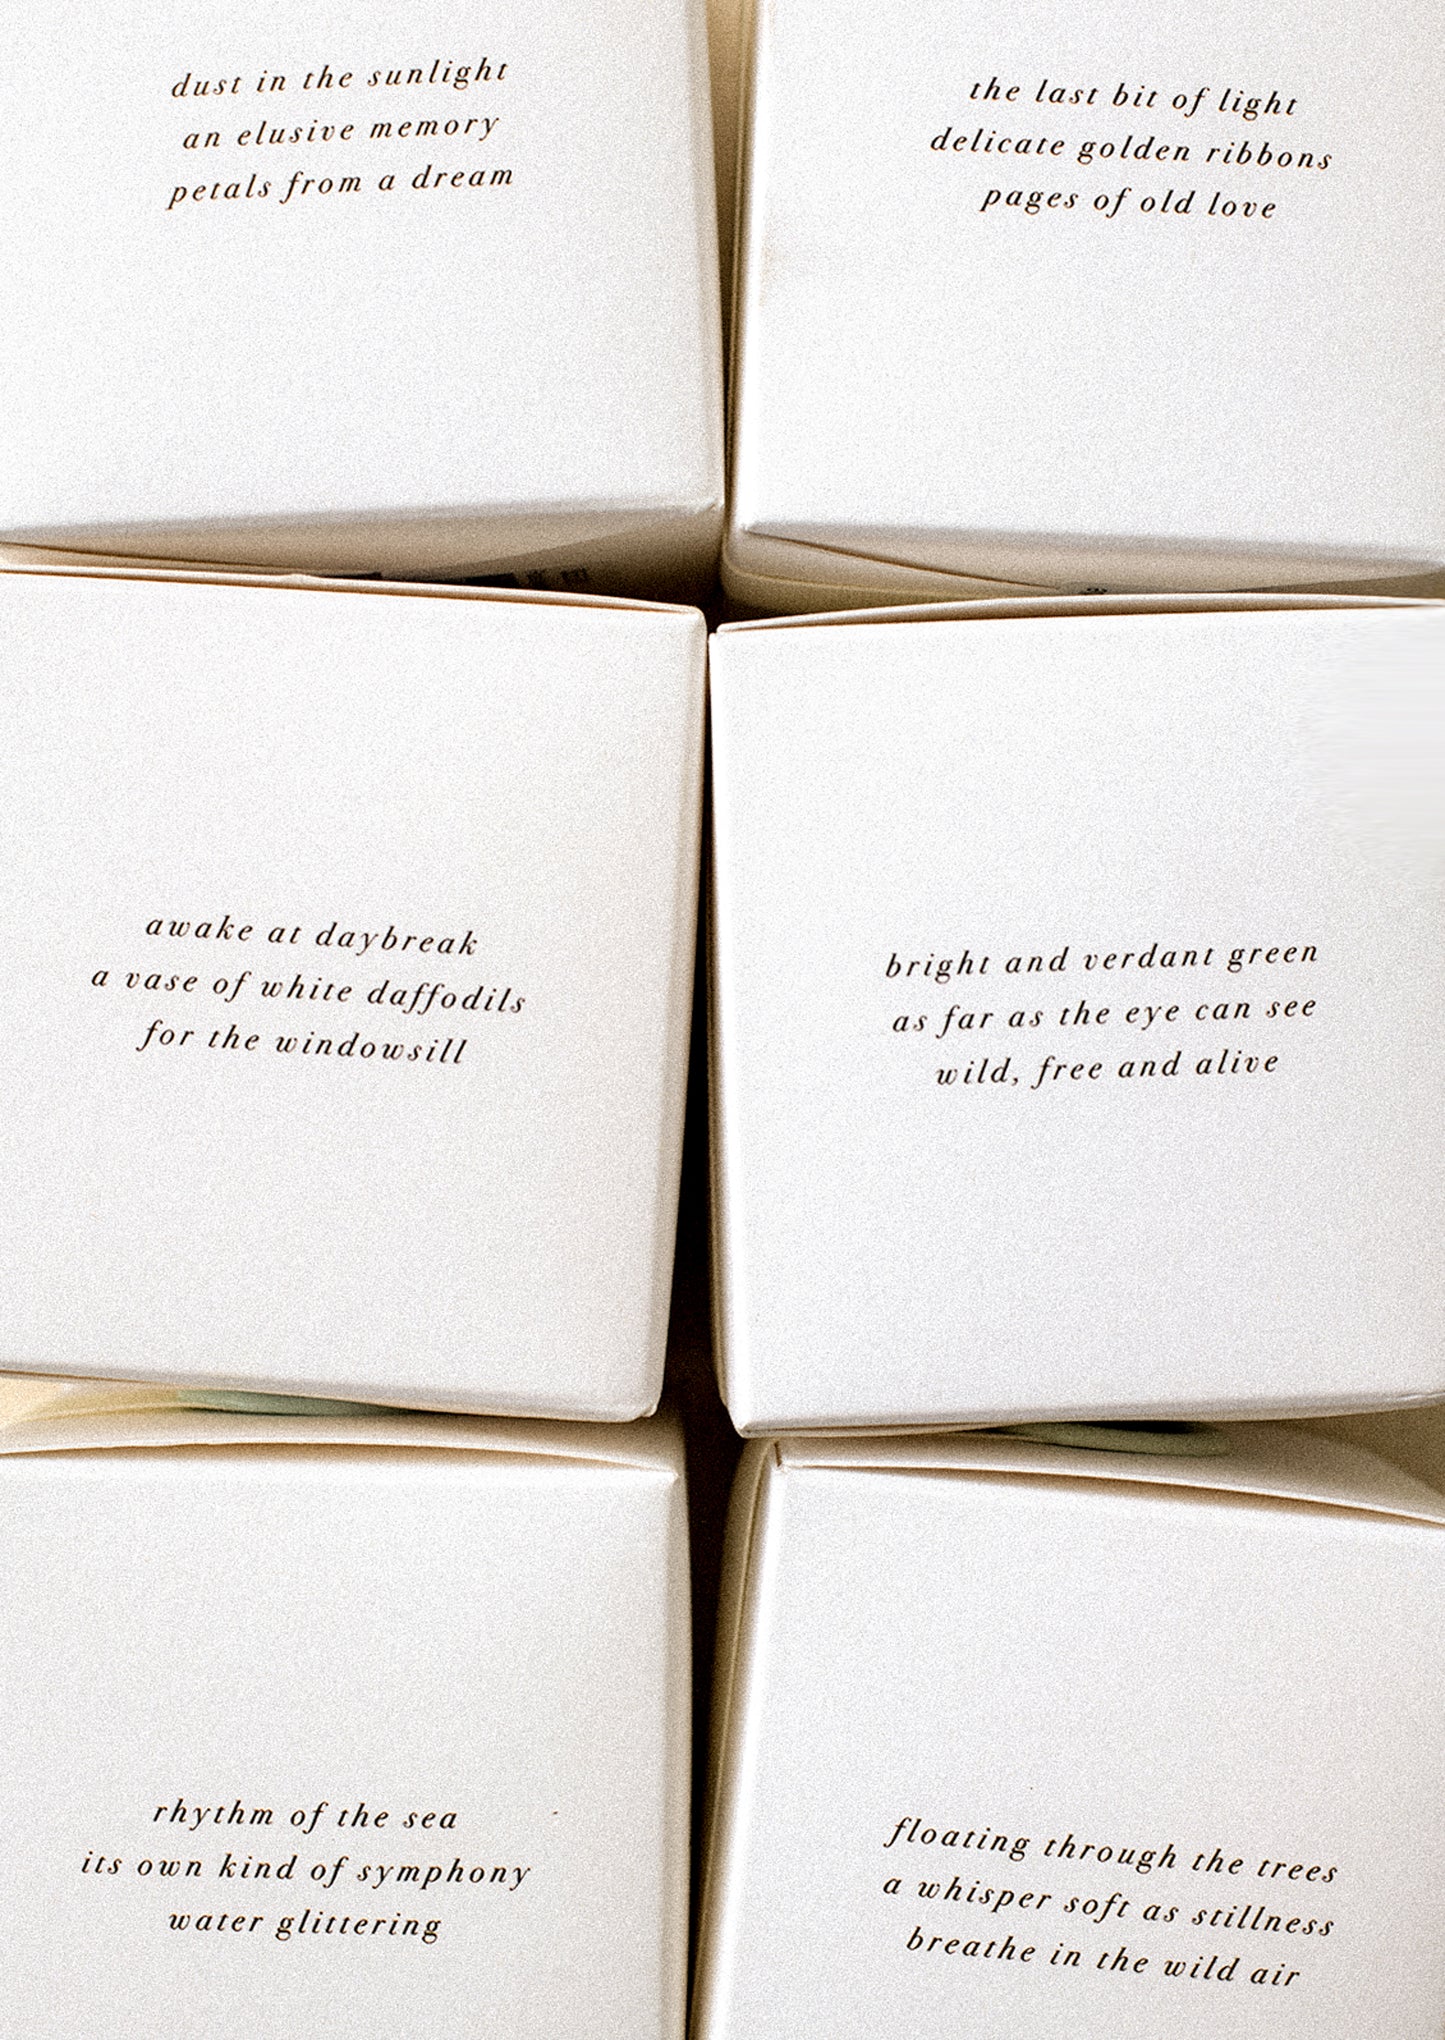 dust in the sunlight
an elusive memory
petals from a dream
the last bit of light
delicate golden ribbons
pages of old love
awake at daybreak
a vase of white daffodils
for the windowsill
bright and verdant green
as far as the eye can see
wild, free and alive
rhythm of the sea
its own kind of symphony
water glittering
floating through the trees
a whisper soft as stillness
breathe in the wild air